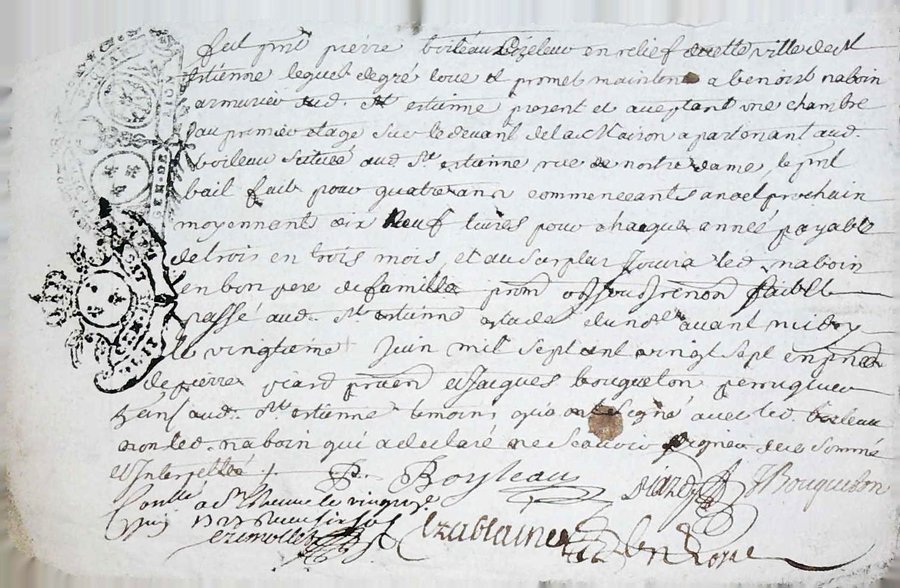 fut pnt pierre boileau Cizeleur en relief de cette ville de St
estienne lequel de gré loue et promet maintenir a benoist naboin
armurier aud. St estienne present et aceptant une chambre
au premier etage sur le devant de la maison apartenant aud.
boileau scituée aud St estienne rue de nostre dame, le pnt
bail fait pour quatre ans commenceants a noel prochain
moyennant dix neuf livres pour chaque année payable
de trois en trois mois, et au surplus Jouira led naboin
en bon pere de famille
passé aud. St estienne estude du nore avant midy
le vingtieme Juin mil sept cent vingt sept en pnce
de pierre viard praen et Jacques bouqueton perruquier
aud. St estienne temoins qui ont signé avec led boileau
non led. naboin qui a declaré ne scavoir signer de ce sommé
et Interpellé
P. Boyleau viard JBouqueton
a St Etienne le vingt
juin 1727